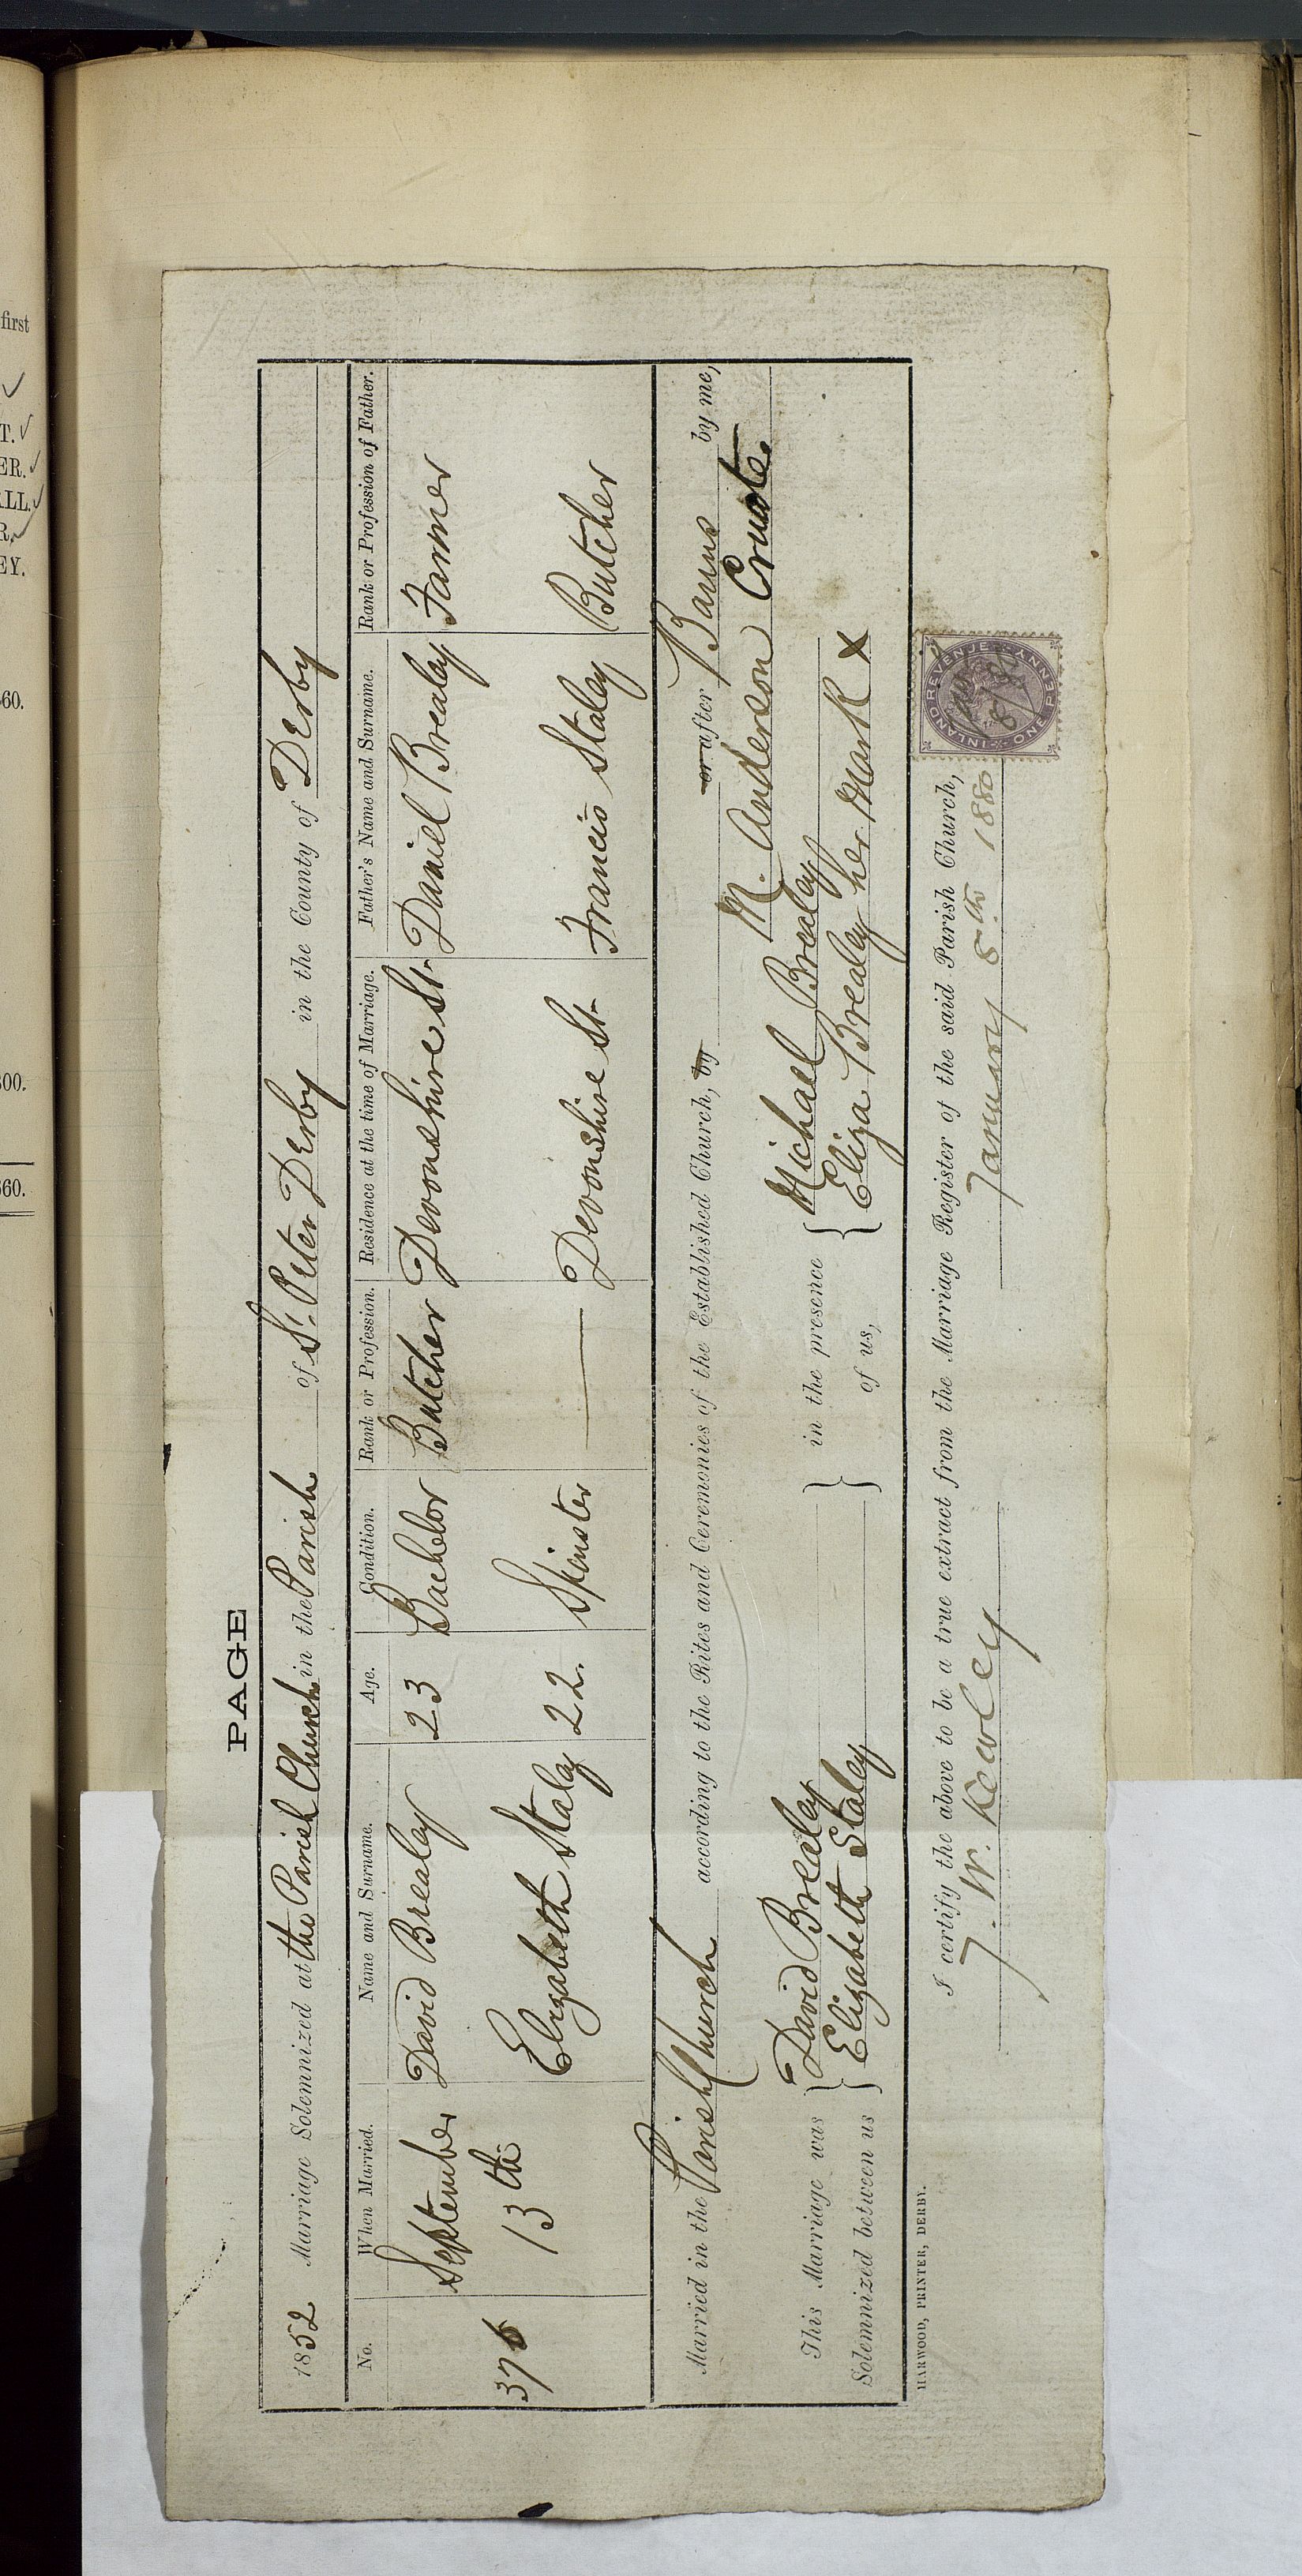 first
T.
ER.
ALL.
R.
EY.
60.
300.
560.
PAGE
1852 Marriage Solemnized at the Parish Church in the Parish of St. Peter Derby in the County of Derby
No. When Married. Name and Surname. Age. Condition. Rank or Profession. Residence at the time of Marriage. Father's Name and Surname. Rank or Profession of Father.
September David Brealey 23 Bachelor Butcher Devonshire St. Daniel Brealey Farmer
376 13th Elizabeth Staley 22. Spinster Devonshire St. Francis Staley Butcher
Married in the Parish Church according to the Rites and Ceremonies of the Established Church, by or after Banns by me,
M. Anderson Curate.
This Marriage was David Brealey in the presence Michael Brealey
Solemnized between us Elizabeth Staley of us, Eliza Brealey her Mark X
HARWOOD, PRINTER, DERBY.
I certify the above to be a true extract from the Marriage Register of the said Parish Church,
J. W. Kewley January 8th 1880
INLAND REVENUE
ONE PENNY